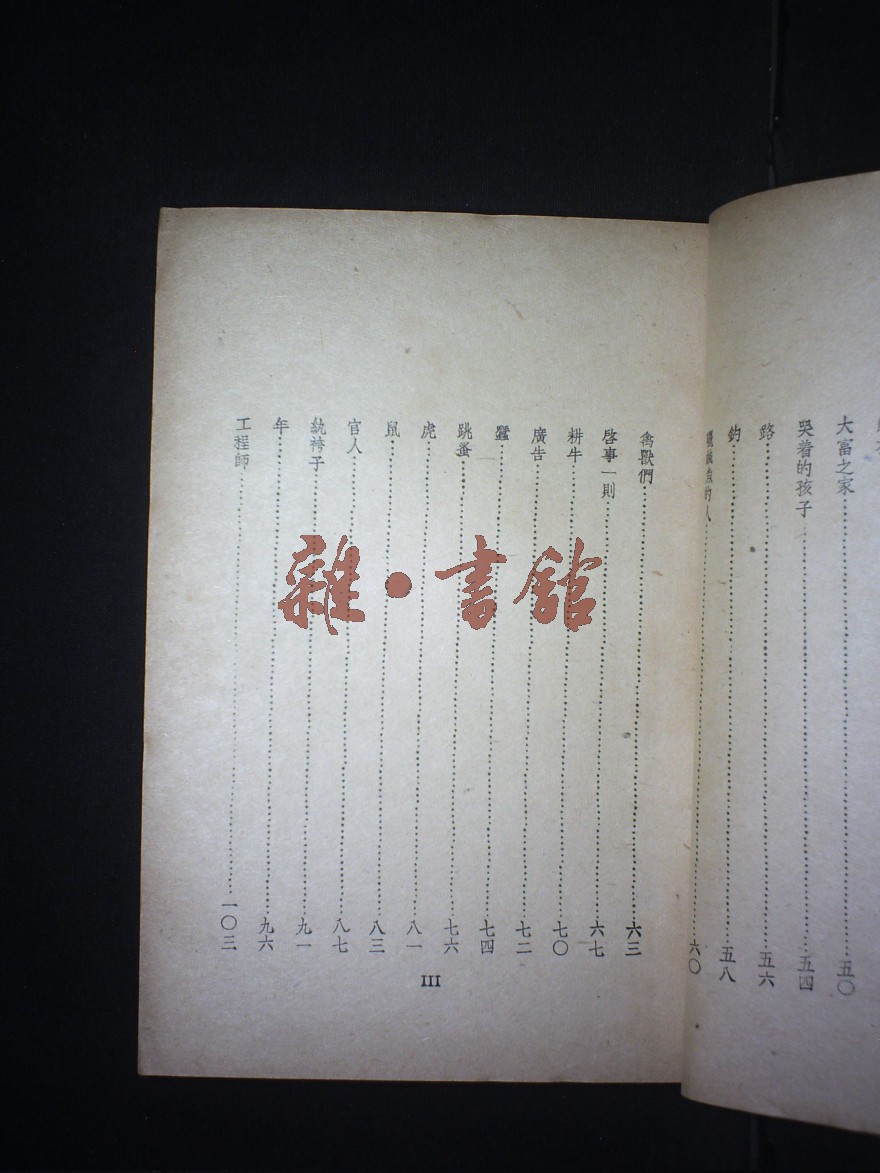 大富之家……五〇
哭着的孩子……五四
路……五六
鈞……五八
的人……六〇
禽獸們……六三
啓事一則……六七
耕牛……七〇
廣告……七二
蠶……七四
跳蚤……七六
虎……八一
鼠……八三
官人……八七
紈袴子……九一
年……九六
工程師……一〇三
III
雜·書館